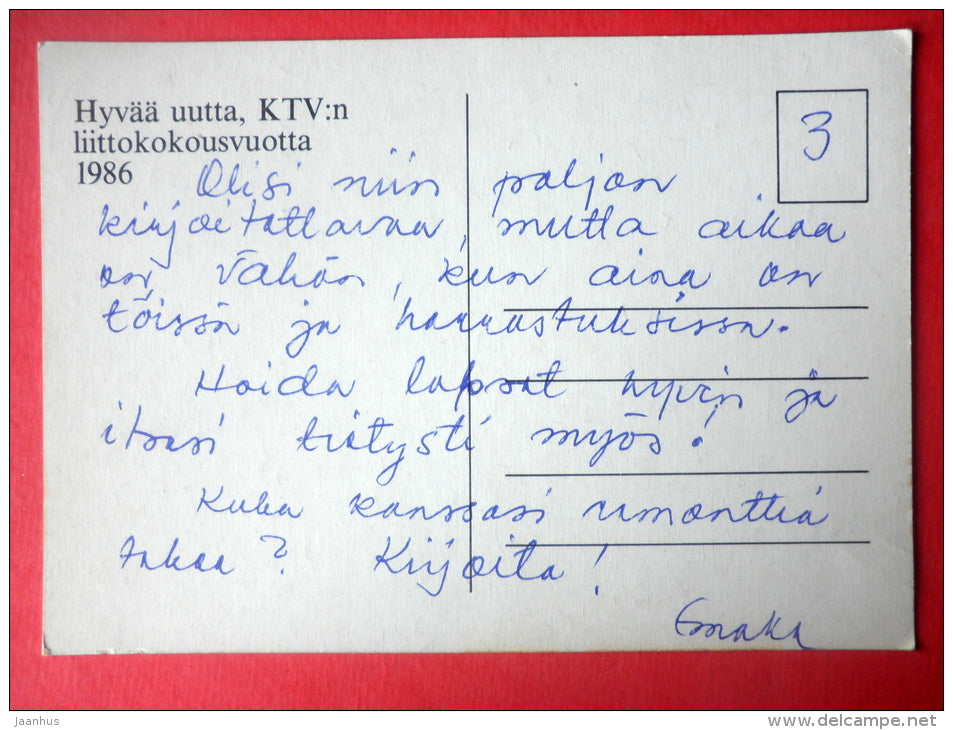 Hyvää uutta, KTV:n
liittokokousvuotta
1986
3
Olisi niin paljon
kirjoitettavaa, mutta aikaa
on vähän, kun aina on
töissä ja harrastuksissa.
Hoida lapset hyvin ja
itsesi tietysti myös!
Kuka kanssasi remonttia
tekee? Kirjoita!
Jaanhus
www.delcampe.net